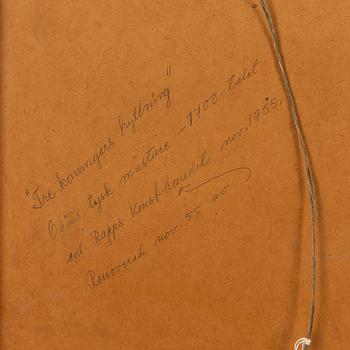 "Tre konungars hyllning"
Okänd tysk mästare - 1700-talet
enl. Rapps Konsthandel nov. 1955.
Renoverad nov 55 av